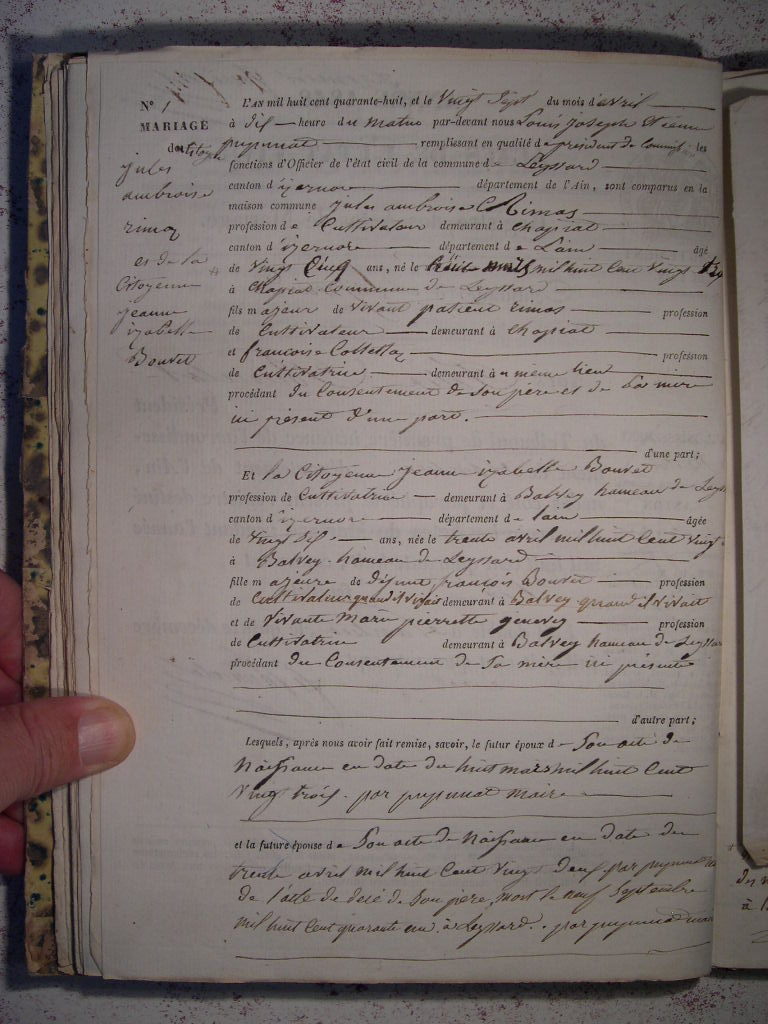 N° 1
MARIAGE
du citoyen
jules
ambroise
rimoz
et de la
Citoyenne
jeanne
izabelle
Bouvet
L'AN mil huit cent quarante-huit, et le vingt Sept du mois d'avril
à dix heure du matin par-devant nous Louis joseph
puyunat remplissant en qualité de président de les
fonctions d'Officier de l'état civil de la commune de Leyssard
canton d'izernore département de l'Ain, sont comparus en la
maison commune jules ambroise Rimoz
profession de Cultivateur demeurant à chapiat
canton d'izernore département de Lain âgé
de vingt Cinq ans, né le huit mars mil huit Cent vingt
à Chapiat Commune de Leyssard
fils majeur de vivant patient rimoz profession
de Cultivateur demeurant à chapiat
et francoise Collettaz profession
de Cultivatrice demeurant à même lieu
procédant du Consentement de Son père et de Sa mère
ici présent d'une part.
d'une part;
Et la Citoyenne jeanne izabelle Bouvet
profession de Cultivatrice demeurant à Balvey hameau de Leyss
canton d'izernore département de lain âgée
de vingt Six ans, née le trente avril mil huit Cent vingt
à Balvey hameau de Leyssard
fille majeure de défunt françois Bouvet profession
de Cultivateur quand il vivait demeurant à Balvey quand il vivait
et de vivante Marie pierrette genevey profession
de Cultivatrice demeurant à Balvey hameau de Leyssard
procédant du Consentement de Sa mère ici présente
d'autre part;
Lesquels, après nous avoir fait remise, savoir, le futur époux de Son acte de
Naissance en date du huit mars mil huit Cent
vingt trois par puyunat maire
et la future épouse de Son acte de Naissance en date du
trente avril mil huit Cent vingt deux par puyunat
de l'acte de décé de Son père, mort le neuf Septembre
mil huit Cent quarante un à Leyssard. par puyunat maire